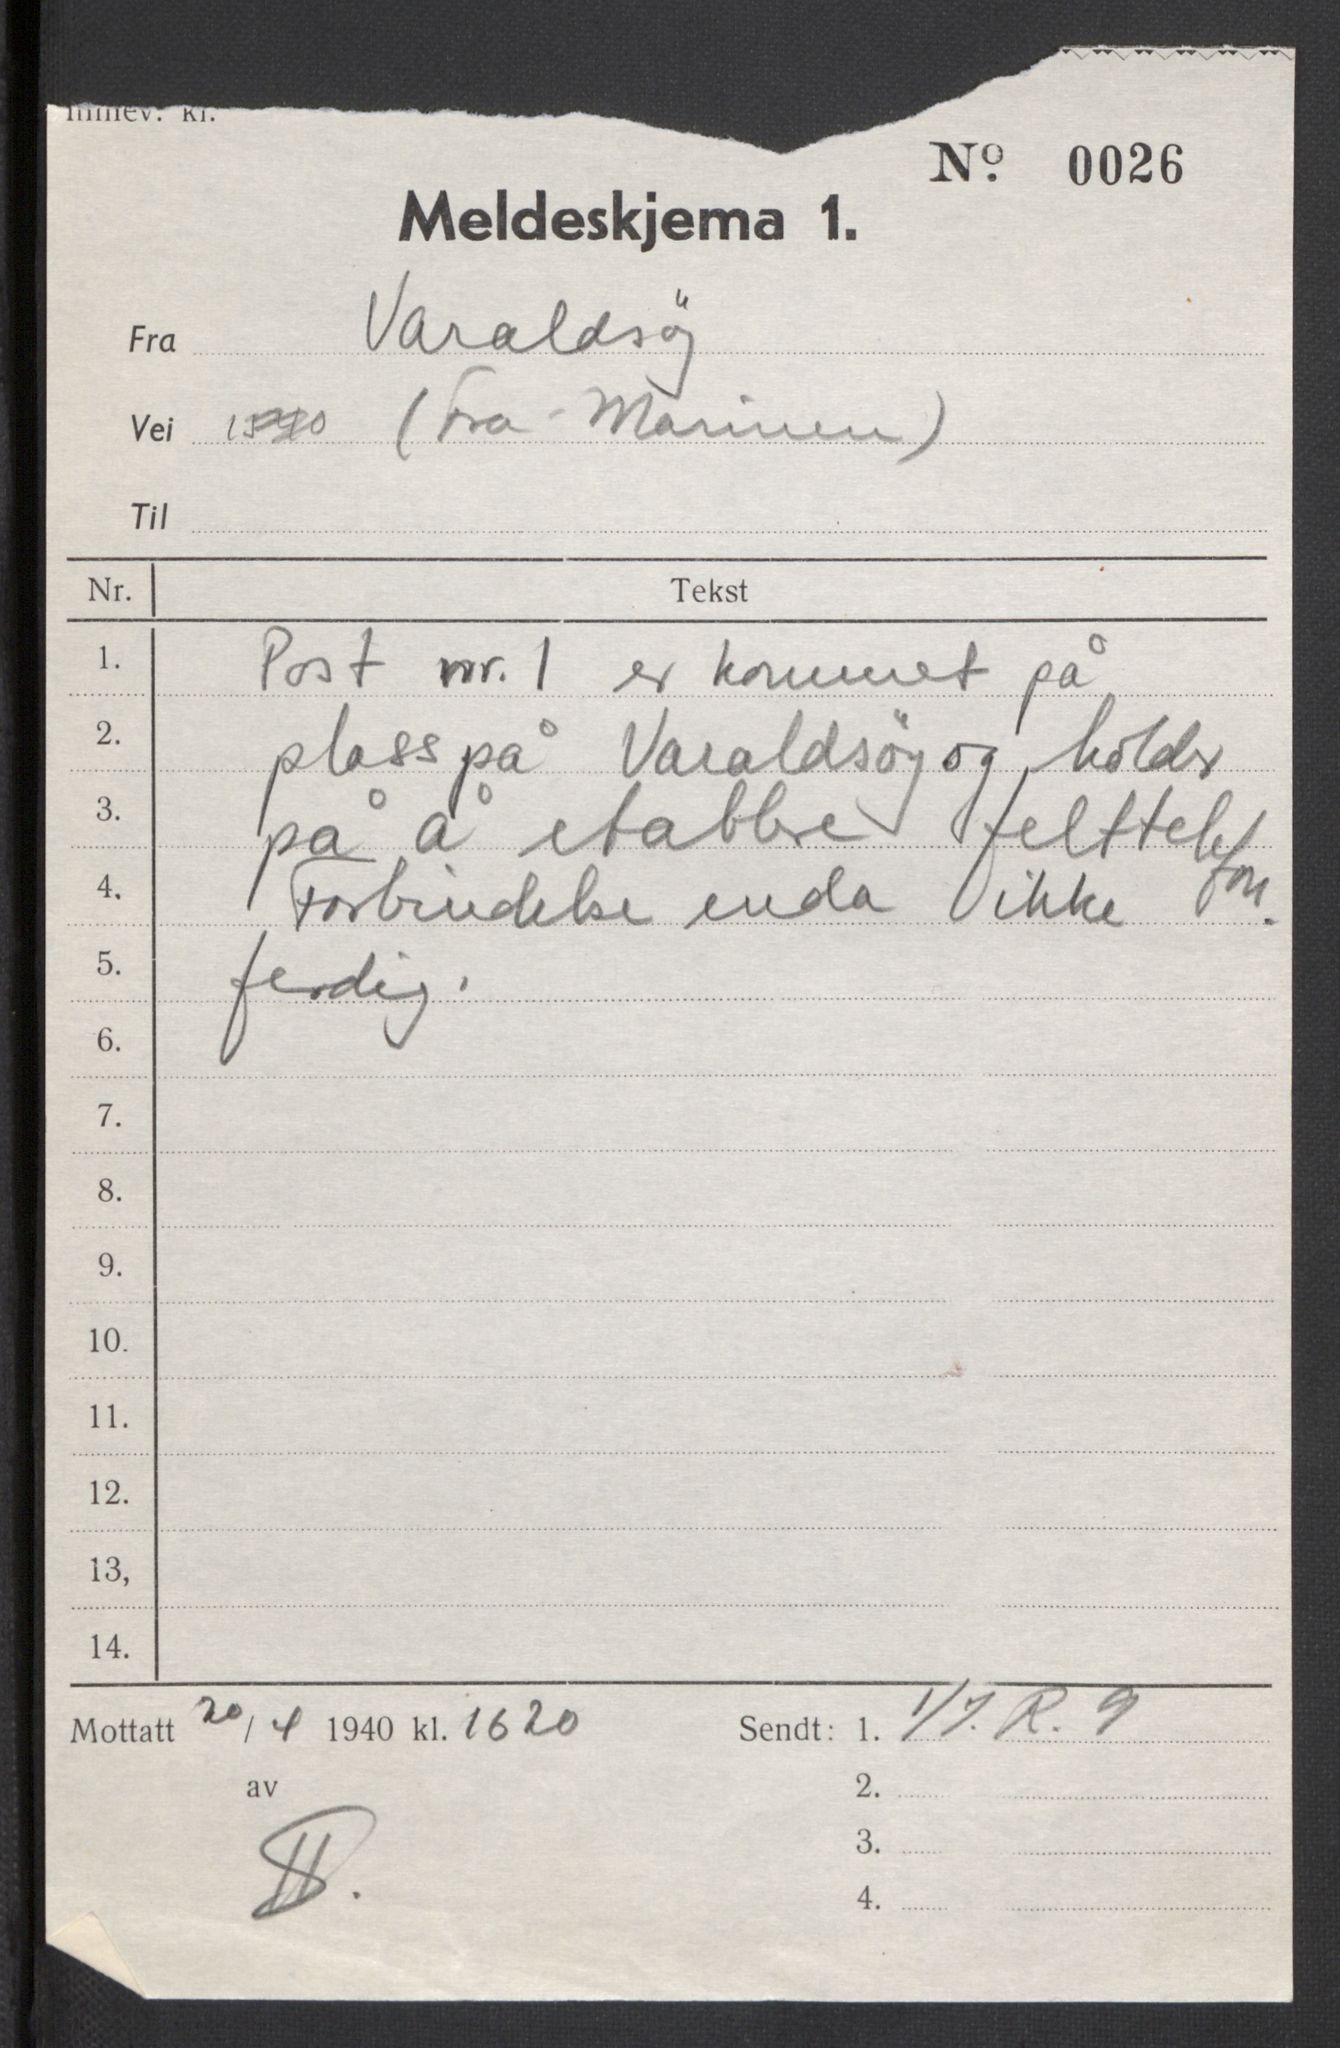 Innlev. kl.
Nº. 0026
Meldeskjema 1.
Fra Varaldsöy
Vei (Fra Marinen)
Til
Nr. Tekst
1. Post nr. 1 er kommet på
2. plass på Varaldsöy og holder
3. på å etablere felttelefon.
4. Forbindelse enda ikke
5. ferdig.
6.
7.
8.
9.
10.
11.
12.
13,
14.
Mottatt 20/4 1940 kl. 1620 Sendt: 1. I/J. R. 9
av 2.
3.
4.